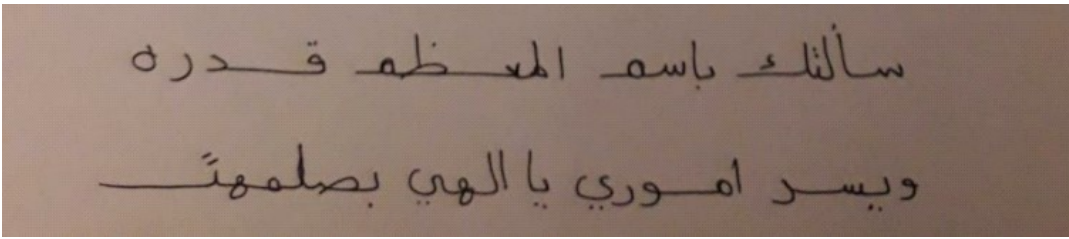 سألتك باسم المعظم قدره
ويسر اموري يا الهي بصلمهتً